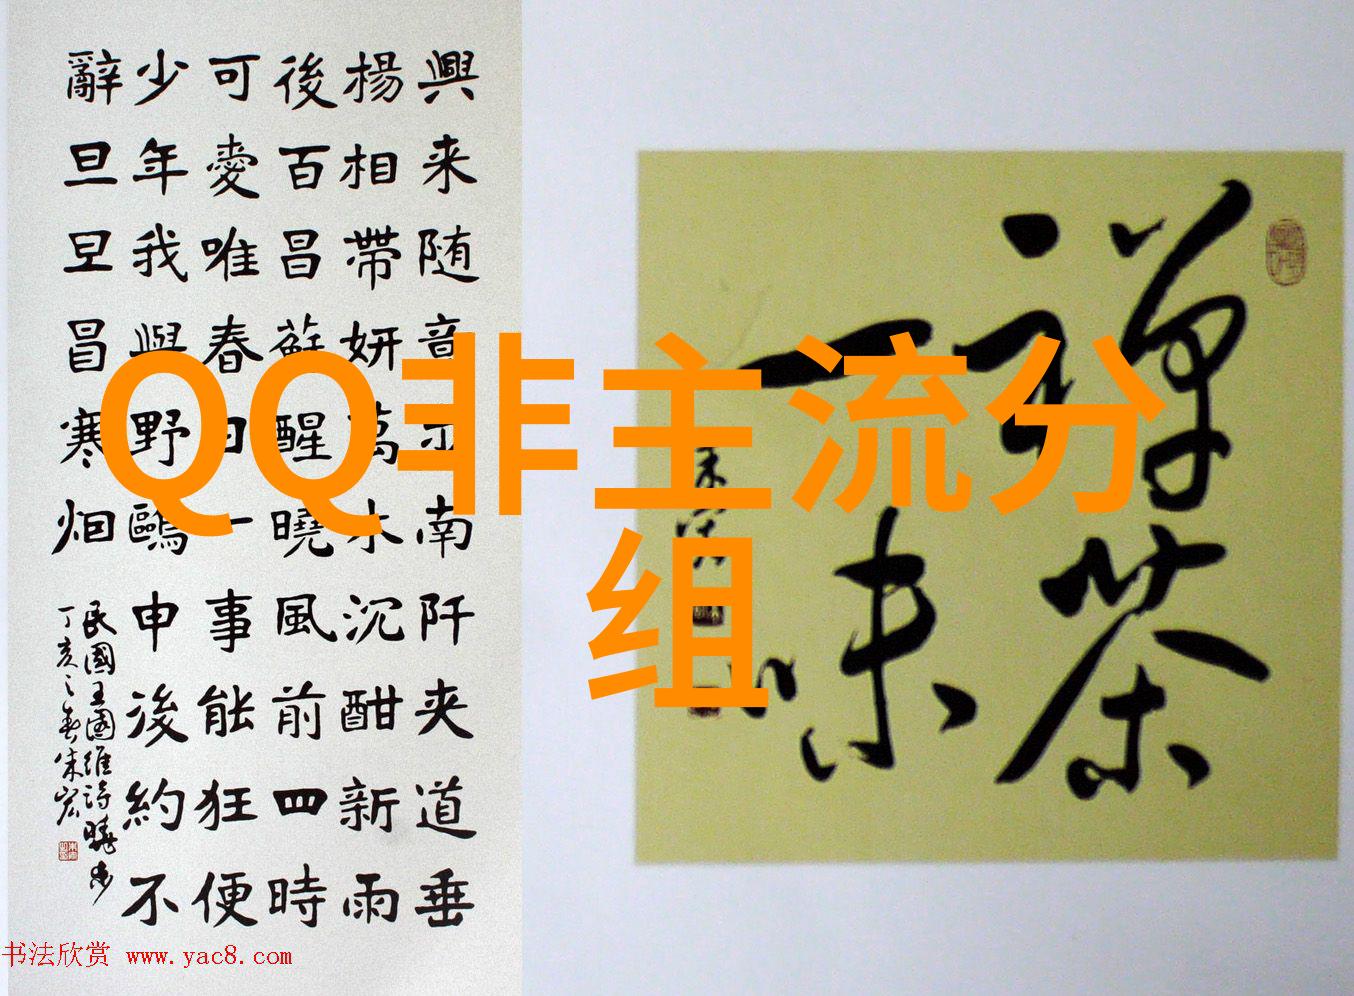 興来随意步南阡夹道垂
楊相帶妍萬木沉酣新雨
後百昌蘇醒曉風前四時
可愛唯春日一事能狂便
少年我與野鷗申後約不
辭旦旦冒寒烟
民國王國維詩曉步
丁亥之春朱宏
禅茶
一味
QQ非主流分
组
书法欣赏 www.yac8.com